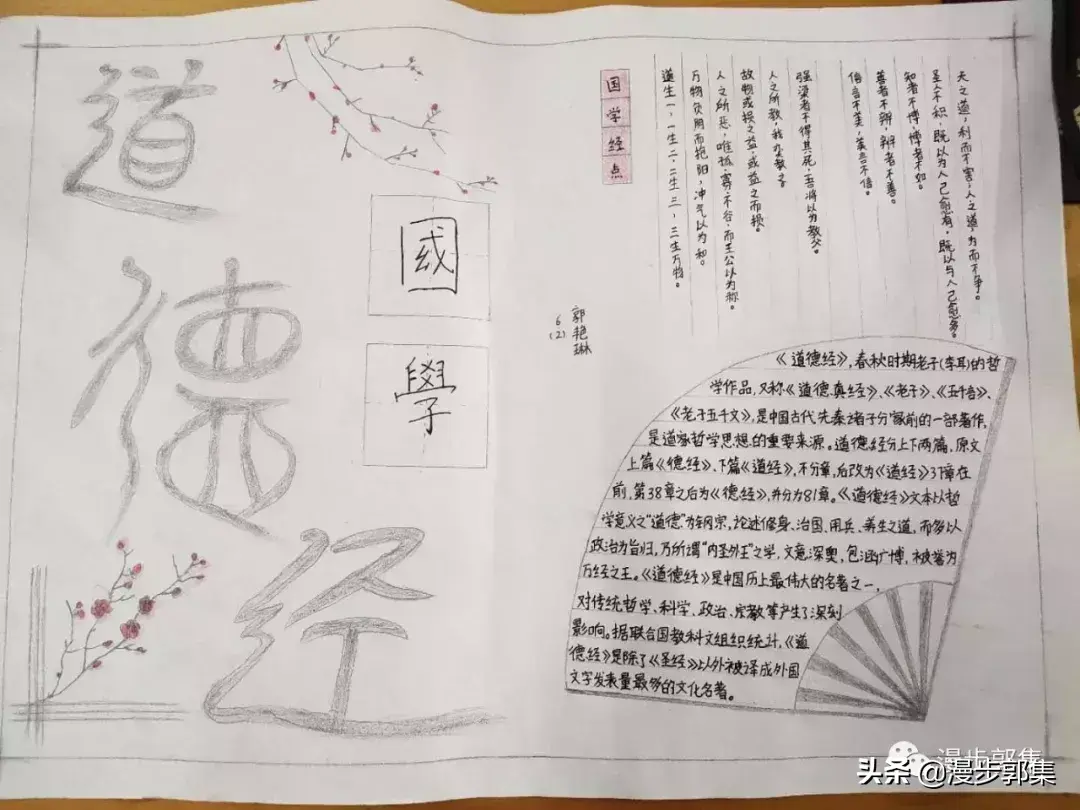 道
德
经
國
學
天之道,利而不害,人之道,为而不争。
圣人不积,既以为人己愈有,既以与人己愈多。
知者不博,博者不知。
善者不辩,辩者不善。
信言不美,美言不信。
强梁者不得其死,吾将以为教父。
人之所教,我亦教之。
故物或损之益,或益之而损。
人之所恶,唯孤、寡、不谷,而王公以为称。
万物负阴而抱阳,冲气以为和。
道生一,一生二,二生三,三生万物。
国学经点
郭艳琳
6(2)
《道德经》,春秋时期老子(李耳)的哲
学作品,又称《道德真经》、《老子》、《五千言》、
《老子五千文》,是中国古代先秦诸子分家前的一部著作,
是道家哲学思想的重要来源。道德经分上下两篇,原文
上篇《德经》、下篇《道经》,不分章,后改为《道经》37章在
前,第38章之后为《德经》,并分为81章。《道德经》文本以哲
学意义之“道德”为纲宗,论述修身、治国、用兵、养生之道,而多以
政治为旨归,乃所谓“内圣外王”之学,文意深奥,包涵广博,被誉为
万经之王。《道德经》是中国历上最伟大的名著之一,
对传统哲学、科学、政治、宗教等产生了深刻
影响。据联合国教科文组织统计,《道
德经》是除了《圣经》以外被译成外国
文字发表量最多的文化名著。
漫步郭集
头条 @漫步郭集